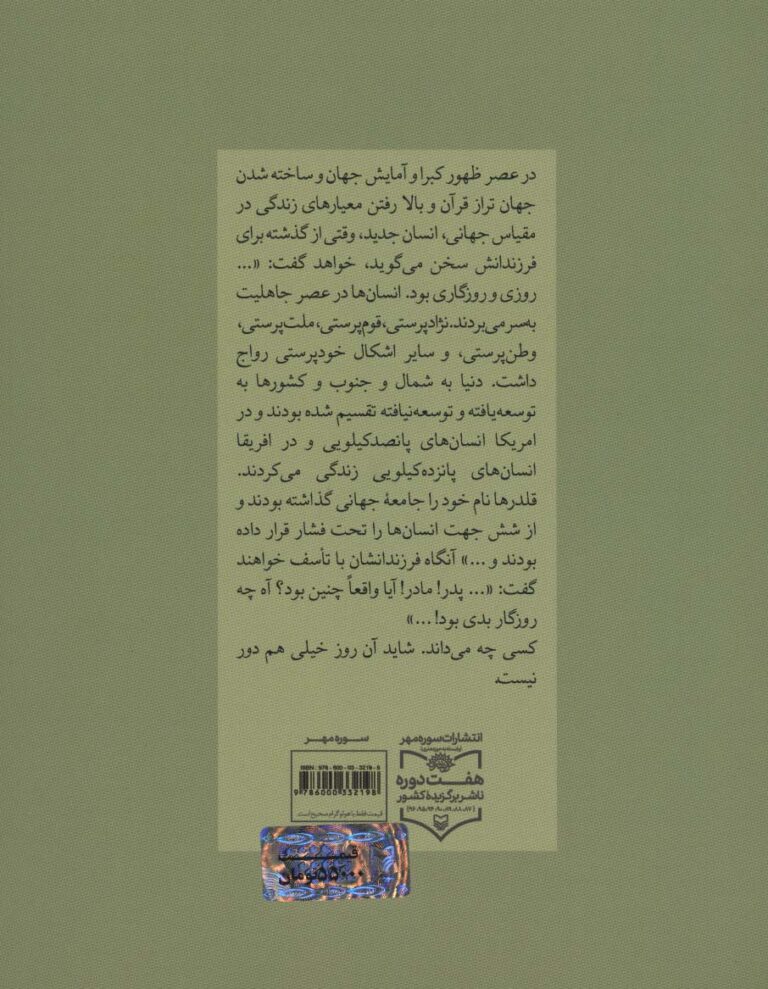 در عصر ظهور کبرا و آمایش جهان و ساخته شدن
جهان تراز قرآن و بالا رفتن معیارهای زندگی در
مقیاس جهانی، انسان جدید، وقتی از گذشته برای
فرزندانش سخن می‌گوید، خواهد گفت: «...
روزی و روزگاری بود. انسان‌ها در عصر جاهلیت
به‌سر می‌بردند. نژادپرستی، قوم‌پرستی، ملت‌پرستی،
وطن‌پرستی، و سایر اشکال خودپرستی رواج
داشت. دنیا به شمال و جنوب و کشورها به
توسعه‌یافته و توسعه‌نیافته تقسیم شده بودند و در
امریکا انسان‌های پانصدکیلویی و در افریقا
انسان‌های پانزده‌کیلویی زندگی می‌کردند.
قلدرها نام خود را جامعهٔ جهانی گذاشته بودند و
از شش جهت انسان‌ها را تحت فشار قرار داده
بودند و ...» آنگاه فرزندانشان با تأسف خواهند
گفت: «... پدر! مادر! آیا واقعاً چنین بود؟ آه چه
روزگار بدی بود! ...»
کسی چه می‌داند. شاید آن روز خیلی هم دور
نیست.
انتشارات سوره مهر
هفت دوره
ناشر برگزیدهٔ کشور
سوره مهر
ISBN: 978-600-03-3219-8
9786000332198
قیمت فقط با هولوگرام صحیح است.
۵۵۰۰۰ تومان